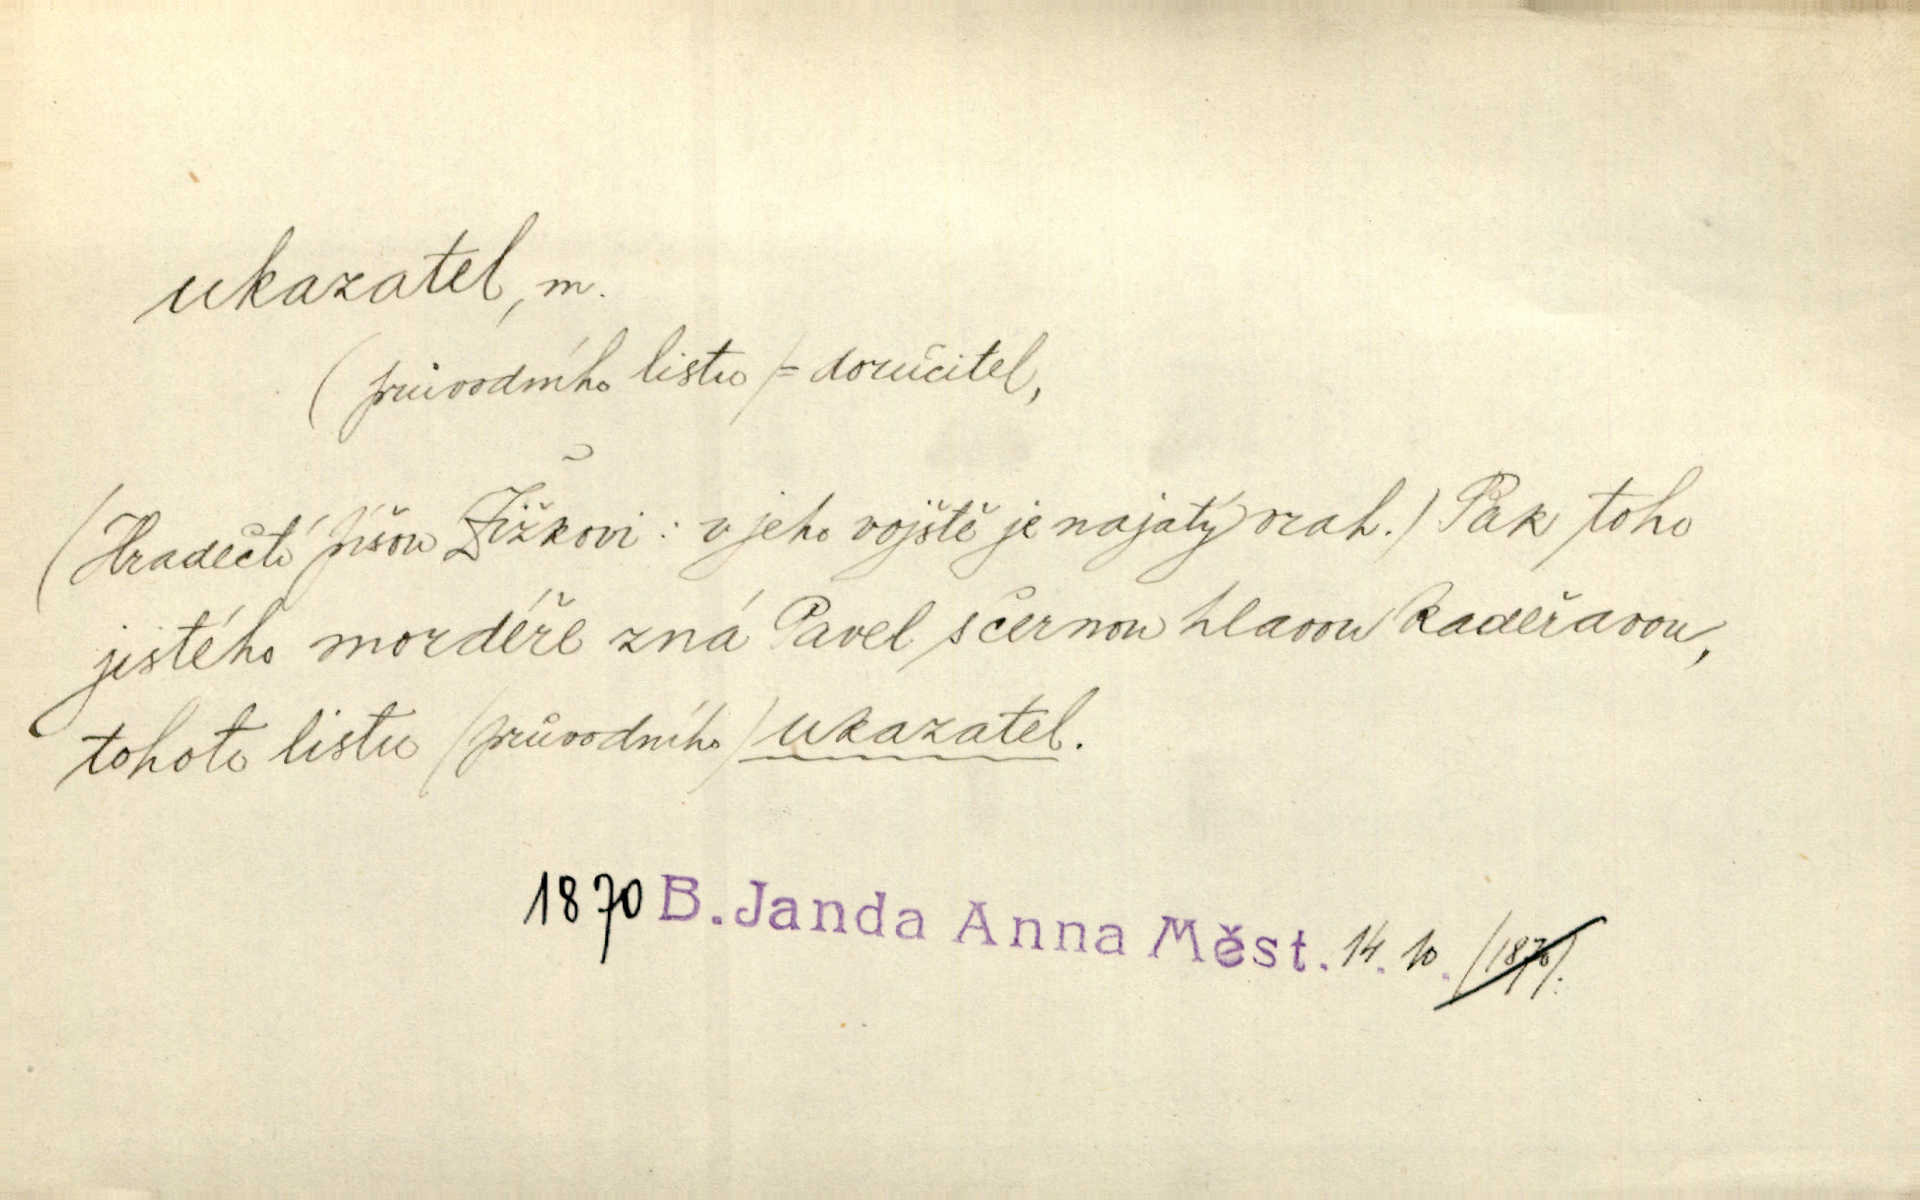 ukazatel, m.
(průvodního listu) = doručitel,
(Hradečtí píšou Žižkovi: v jeho vojště je najatý vrah.) Pak toho
jistého mordéře zná Pavel s černou hlavou kadeřavou,
tohoto listu (průvodního) ukazatel.
1870 B. Janda Anna Měst. 14. 10. (1870).